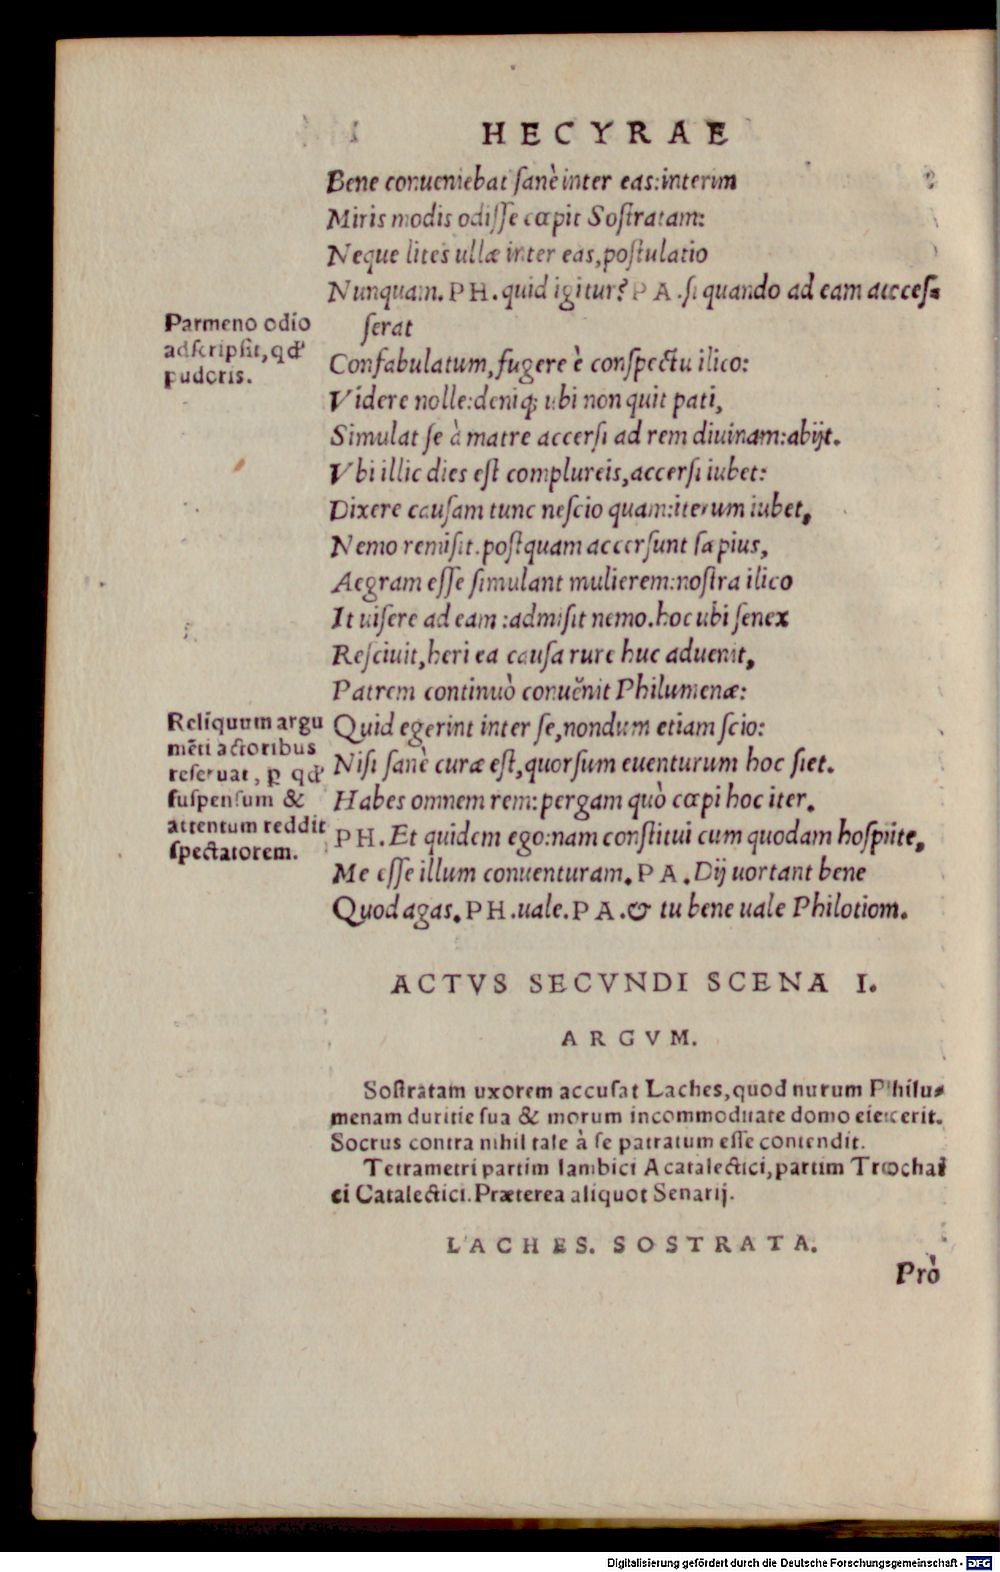 HECYRAE
Bene conueniebat sanè inter eas:interim
Miris modis odisse cœpit Sostratam:
Neque lites ullæ inter eas,postulatio
Nunquam. PH. quid igitur? PA. si quando ad eam accesser
serat
Parmeno odio
adscripsit, qđ
pudoris.
Confabulatum, fugere è conspectu ilico:
Videre nolle:deniq; ubi non quit pati,
Simulat se à matre accersi ad rem diuinam:abijt.
Vbi illic dies est complureis,accersi iubet:
Dixere causam tunc nescio quam:iterum iubet,
Nemo remisit.postquam accersunt sæpius,
Aegram esse simulant mulierem:nostra ilico
It uisere ad eam :admisit nemo.hoc ubi senex
Resciuit,heri ea causa rure huc aduenit,
Patrem continuò conuēnit Philumenæ:
Reliquum argu
mēti actoribus
reseruat, ꝑ qđ
suspensum &
attentum reddit
spectatorem.
Quid egerint inter se,nondum etiam scio:
Nisi sanè curæ est,quorsum euenturum hoc siet.
Habes omnem rem:pergam quò cœpi hoc iter.
PH. Et quidem ego:nam constitui cum quodam hospite,
Me esse illum conuenturam. PA. Dij uortant bene
Quod agas. PH. uale. PA. & tu bene uale Philotiom.
ACTVS SECVNDI SCENA I.
ARGVM.
Sostratam uxorem accusat Laches,quod nurum Philu-
menam duritie sua & morum incommoditate domo eiecerit.
Socrus contra nihil tale à se patratum esse contendit.
Tetrametri partim Iambici Acatalectici,partim Trochai
ci Catalectici.Præterea aliquot Senarij.
LACHES. SOSTRATA.
Prò
Digitalisierung gefördert durch die Deutsche Forschungsgemeinschaft - DFG